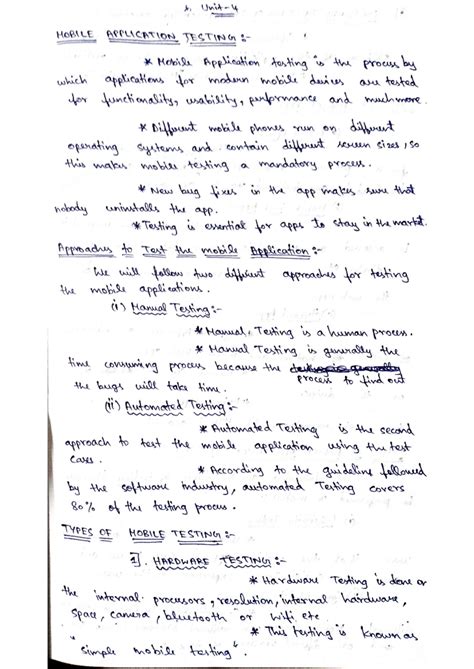 Unit-4
MOBILE APPLICATION TESTING :-
* Mobile Application testing is the process by
which applications for modern mobile devices are tested
for functionality, usability, performance and much more.
* Different mobile phones run on different
operating systems and contain different screen sizes, so
this makes mobile testing a mandatory process.
* New bug fixes in the app makes sure that
nobody uninstalls the app.
* Testing is essential for apps to stay in the market.
Approaches to Test the mobile Application :-
We will follow two different approaches for testing
the mobile applications.
(i) Manual Testing :-
* Manual Testing is a human process.
* Manual Testing is generally the
time consuming process because the
process to find out
the bugs will take time.
(ii) Automated Testing :-
* Automated Testing is the second
approach to test the mobile application using the test
cases.
* According to the guideline followed
by the software industry, automated Testing covers
80% of the testing process.
TYPES OF MOBILE TESTING :-
1. HARDWARE TESTING :-
* Hardware Testing is done on
the internal processors, resolution, internal hardware,
space, camera, bluetooth or wifi etc
* This testing is known as
"simple mobile testing".